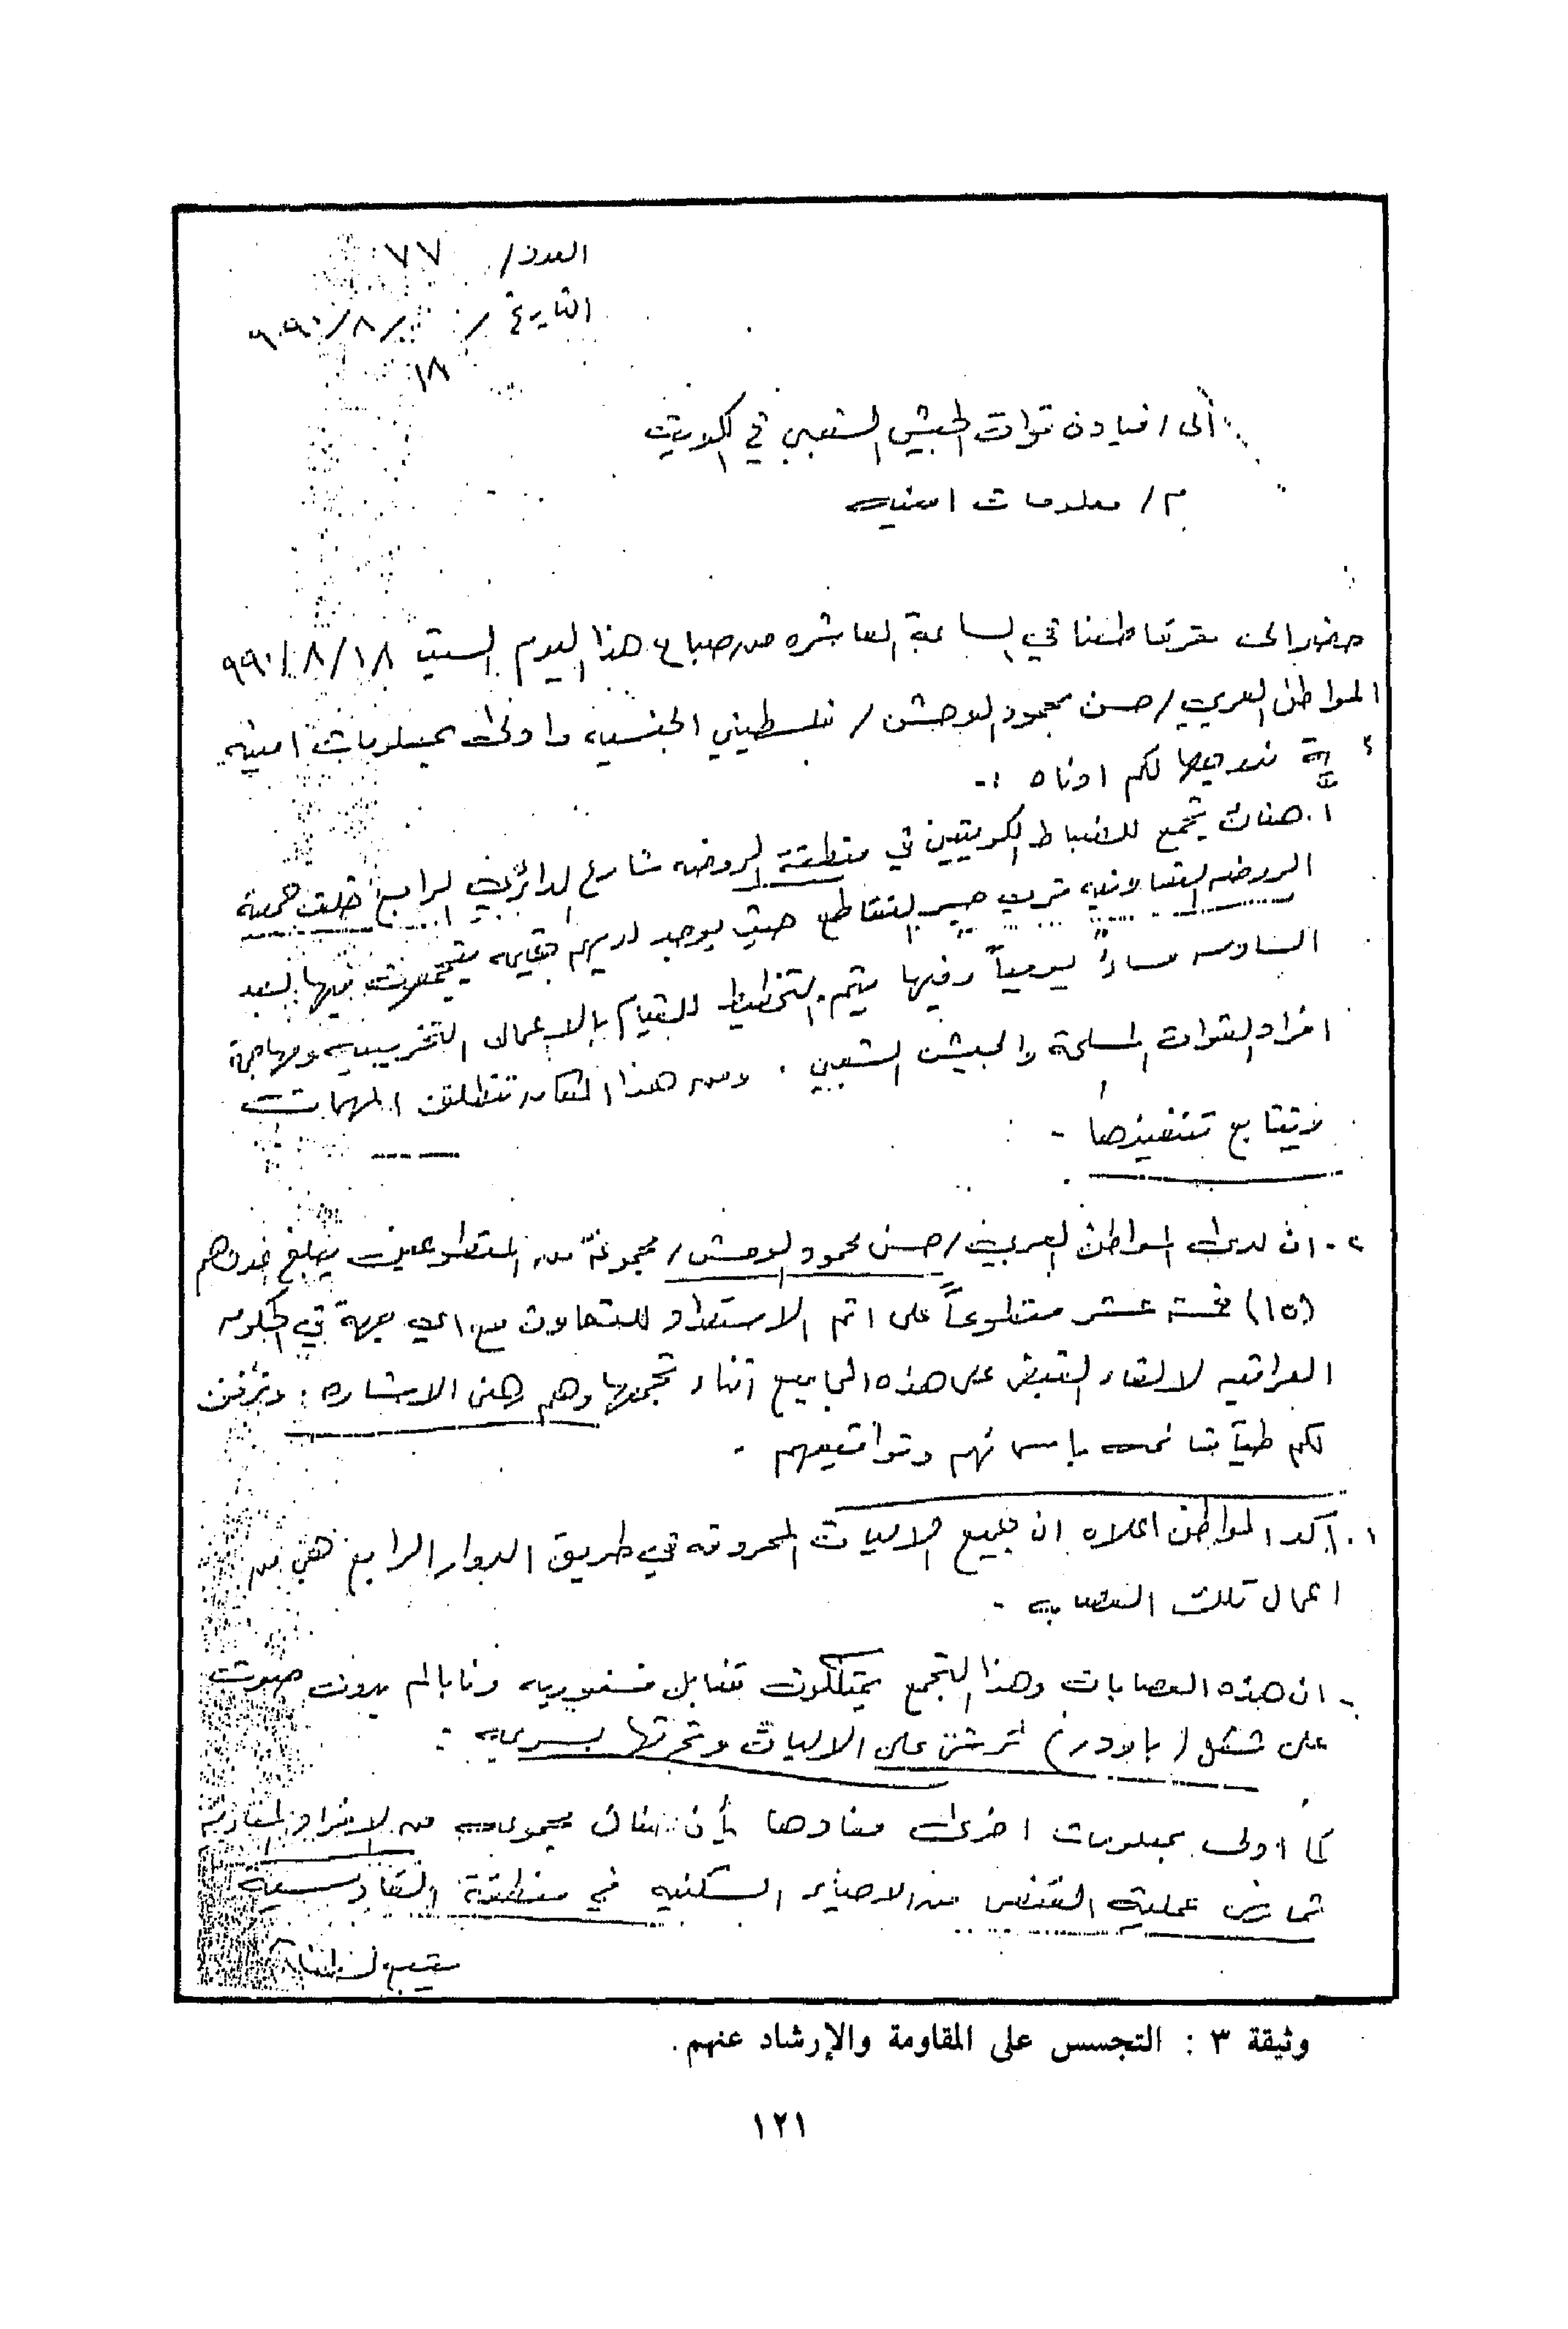 العدد/ ٧٧
التاريخ / /٨/٩٩٠
١٨
الى / قيادة قوات الجيش الشعبي في الكويت
م / معلومات امنيه
حضر الى مقر قاطعنا في الساعة العاشره من صباح هذا اليوم السبت ١٨/٨/٩٩٠
المواطن العربي / حسن محمود الوحش / فلسطيني الجنسيه وادلى بمعلومات امنيه
ندرجها لكم ادناه :-
١. هناك تجمع للضباط الكويتيين في منطقة الروضه شارع الدائري الرابع خلف جمعية
الروضه التعاونيه قرب جسر التقاطع حيث يوجد لديهم يتجمعون فيها بعد
السادسه مساءً يومياً وفيها يتم التخطيط للقيام بالاعمال التخريبيه ومهاجمة
افراد القوات المسلحة والجيش الشعبي . ومن هذا المكان تنطلق المهمات
ويتابع تنفيذها .
٢. ان لدى المواطن العربي / حسن محمود الوحش / مجموعة من المتطوعين يبلغ عددهم
(١٥) خمسة عشر متطوعاً على اتم الاستعداد للتعاون مع اي جهة في الحكومه
العراقيه لالقاء القبض على هذه المجاميع اثناء تجمعها وهم رهن الاشاره . ونرفق
لكم طياً قائمه باسمائهم وتواقيعهم .
. أكد المواطن اعلاه ان جميع الاليات المحروقه في طريق الدوار الرابع هي من
اعمال تلك العصابه .
. ان هذه العصابات وهذا التجمع يمتلكون قنابل فسفوريه ونابالم بدون صوت
على شكل (باودر) ترش على الاليات وتحرقها بسريه .
كما ادلى بمعلومات اخرى مفادها بأن هناك مجموعه من الافراد المغاربة
تمارس عملية القنص من الاحياء السكنيه في منطقة القادسية
وثيقة ٣ : التجسس على المقاومة والإرشاد عنهم.
١٢١